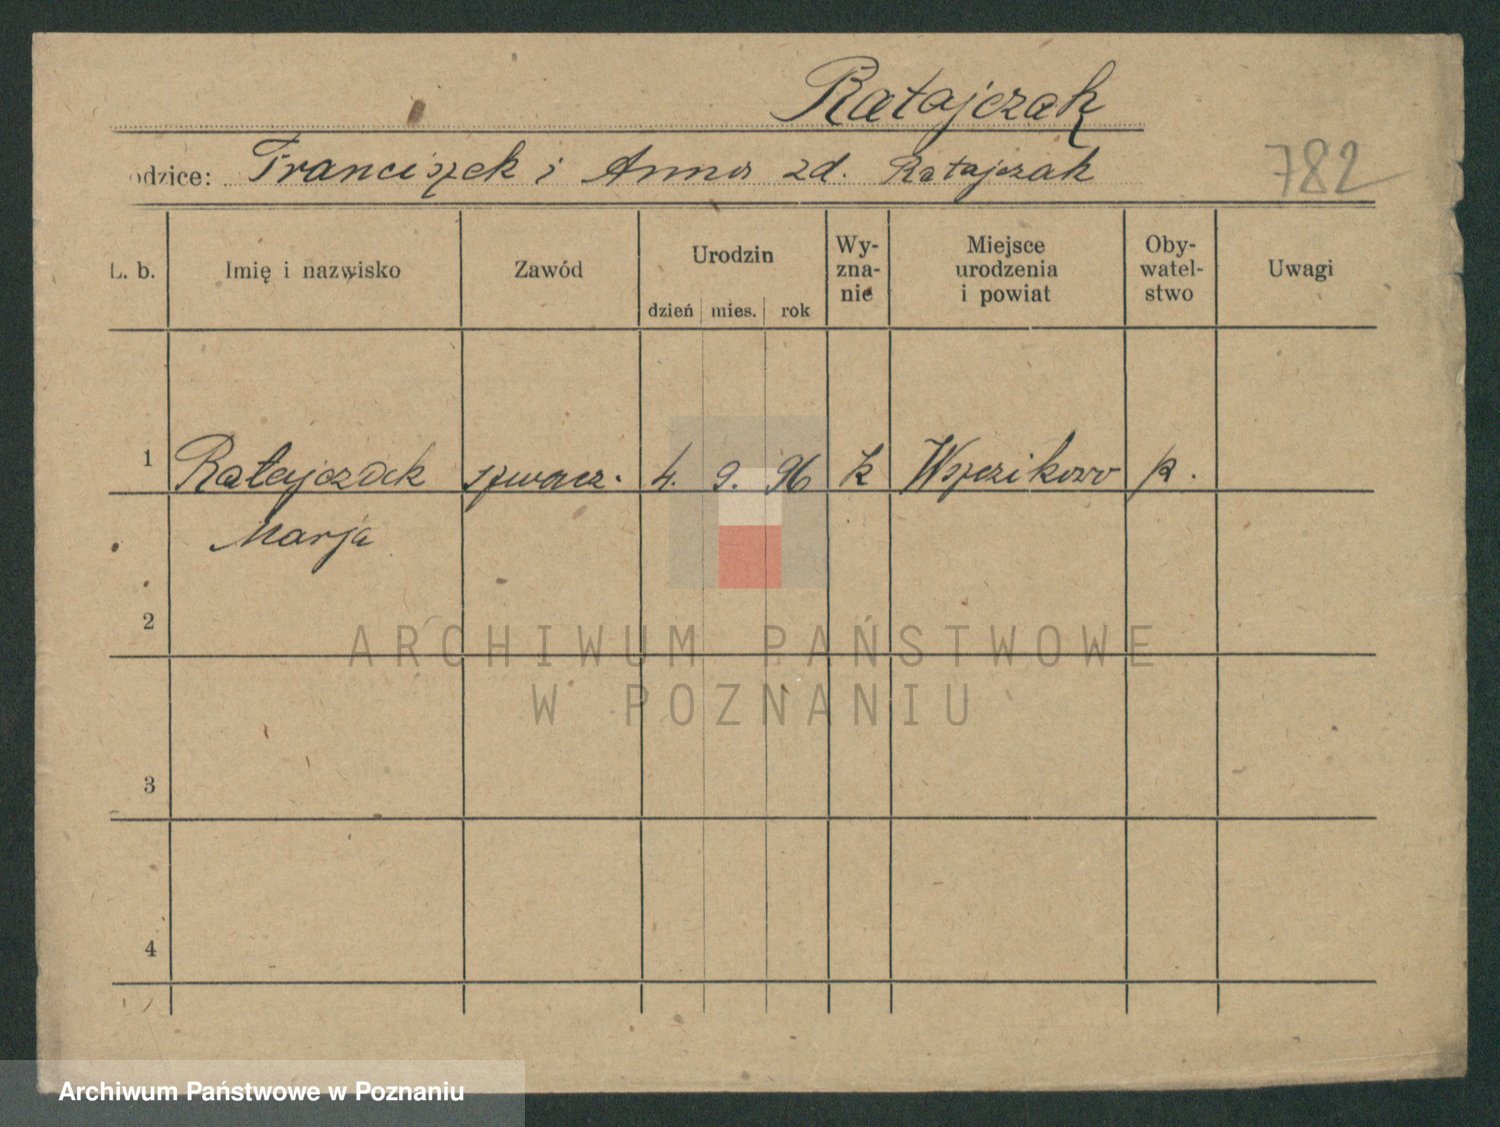 Ratajczak
odzice: Franciszek i Anna zd. Ratajczak
782
L. b. Imię i nazwisko Zawód Urodzin dzień mies. rok Wy-zna-nie Miejsce urodzenia i powiat Oby-watel-stwo Uwagi
1 Ratajczak szwacz. 4. 9. 96 k p.
Marja
2
ARCHIWUM PAŃSTWOWE
W POZNANIU
3
4
Archiwum Państwowe w Poznaniu